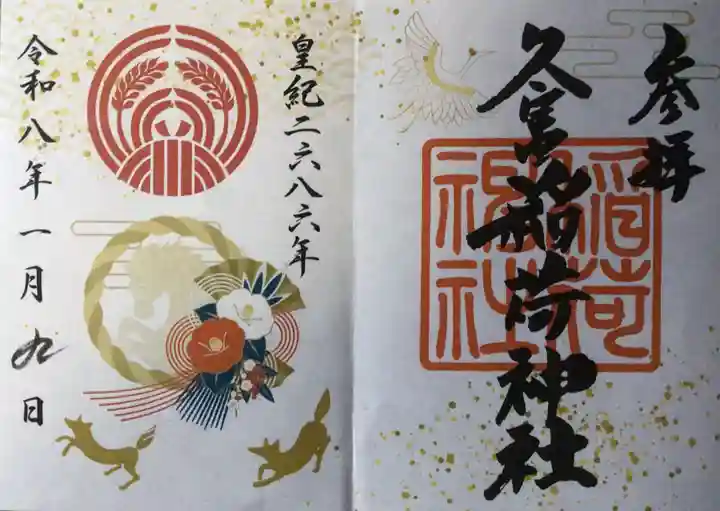 参拝
久富稲荷神社
稲荷
神社
皇紀二六八六年
令和八年一月九日